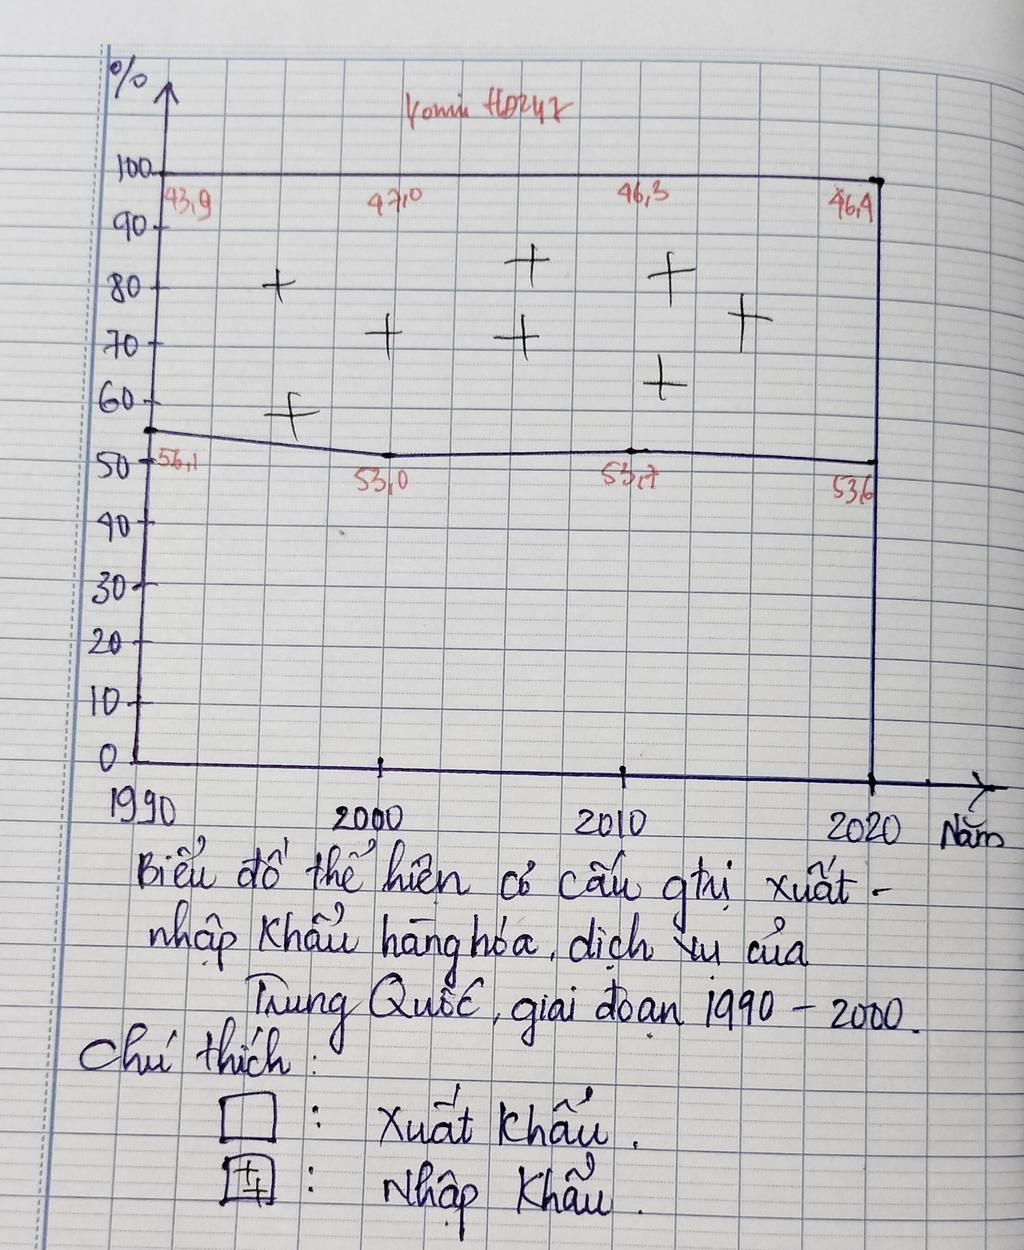 %
100
43,9 47,0 46,3 46,4
90
80
70
60
50 56,1 53,0 53,7 53,6
40
30
20
10
0
1990 2000 2010 2020 Năm
Biểu đồ thể hiện cơ cấu gtrị xuất -
nhập khẩu hàng hóa, dịch vụ của
Trung Quốc, giai đoạn 1990 - 2000.
Chú thích :
: xuất khẩu.
: Nhập khẩu.